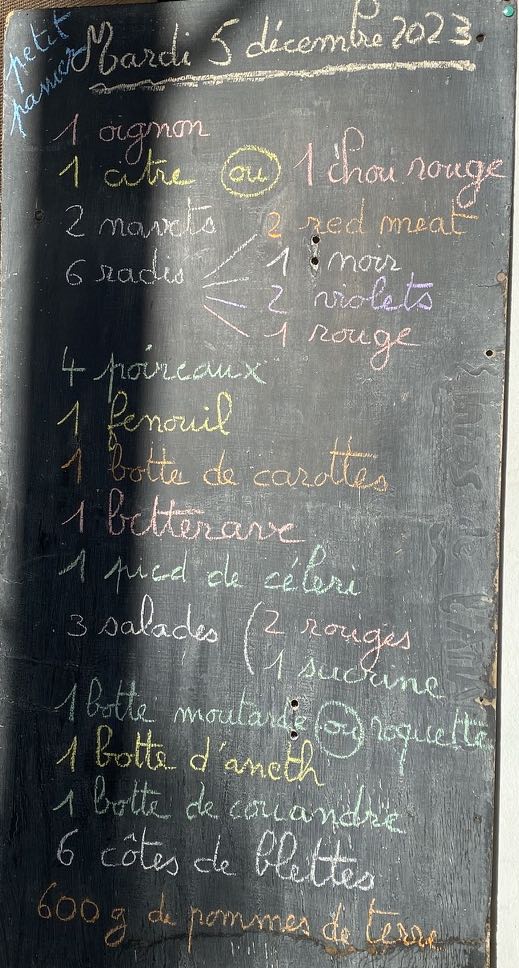 petit
panier
Mardi 5 décembre 2023
1 oignon
1 citre ou 1 chou rouge
2 navets 2 red meat
6 radis 1 noir
2 violets
1 rouge
4 poireaux
1 fenouil
1 botte de carottes
1 betterave
1 pied de céleri
3 salades ( 2 rouges
1 sucrine
1 botte moutarde ou roquette
1 botte d'aneth
1 botte de coriandre
6 côtes de blettes
600 g de pommes de terre